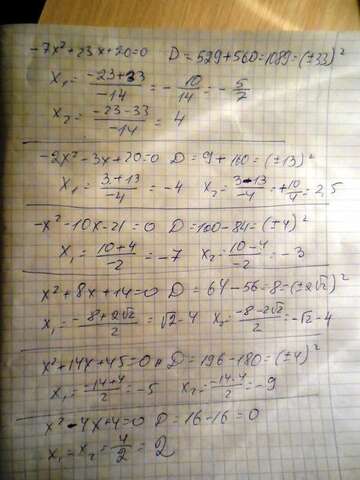 -7x²+23x+20=0 D=529+560=1089=(±33)²
x₁=(-23+33)/(-14)=-10/14=-5/7
x₂=(-23-33)/(-14)=4
-2x²-3x+20=0 D=9+160=(±13)²
x₁=(3+13)/(-4)=-4 x₂=(3-13)/(-4)=+10/4=2,5
-x²-10x-21=0 D=100-84=(±4)²
x₁=(10+4)/(-2)=-7 x₂=(10-4)/(-2)=-3
x²+8x+14=0 D=64-56=8=(±2√2)²
x₁=(-8+2√2)/2=√2-4 x₂=(-8-2√2)/2=-√2-4
x²+14x+45=0 D=196-180=(±4)²
x₁=(-14+4)/2=-5 x₂=(-14-4)/2=-9
x²-4x+4=0 D=16-16=0
x₁=x₂=4/2=2